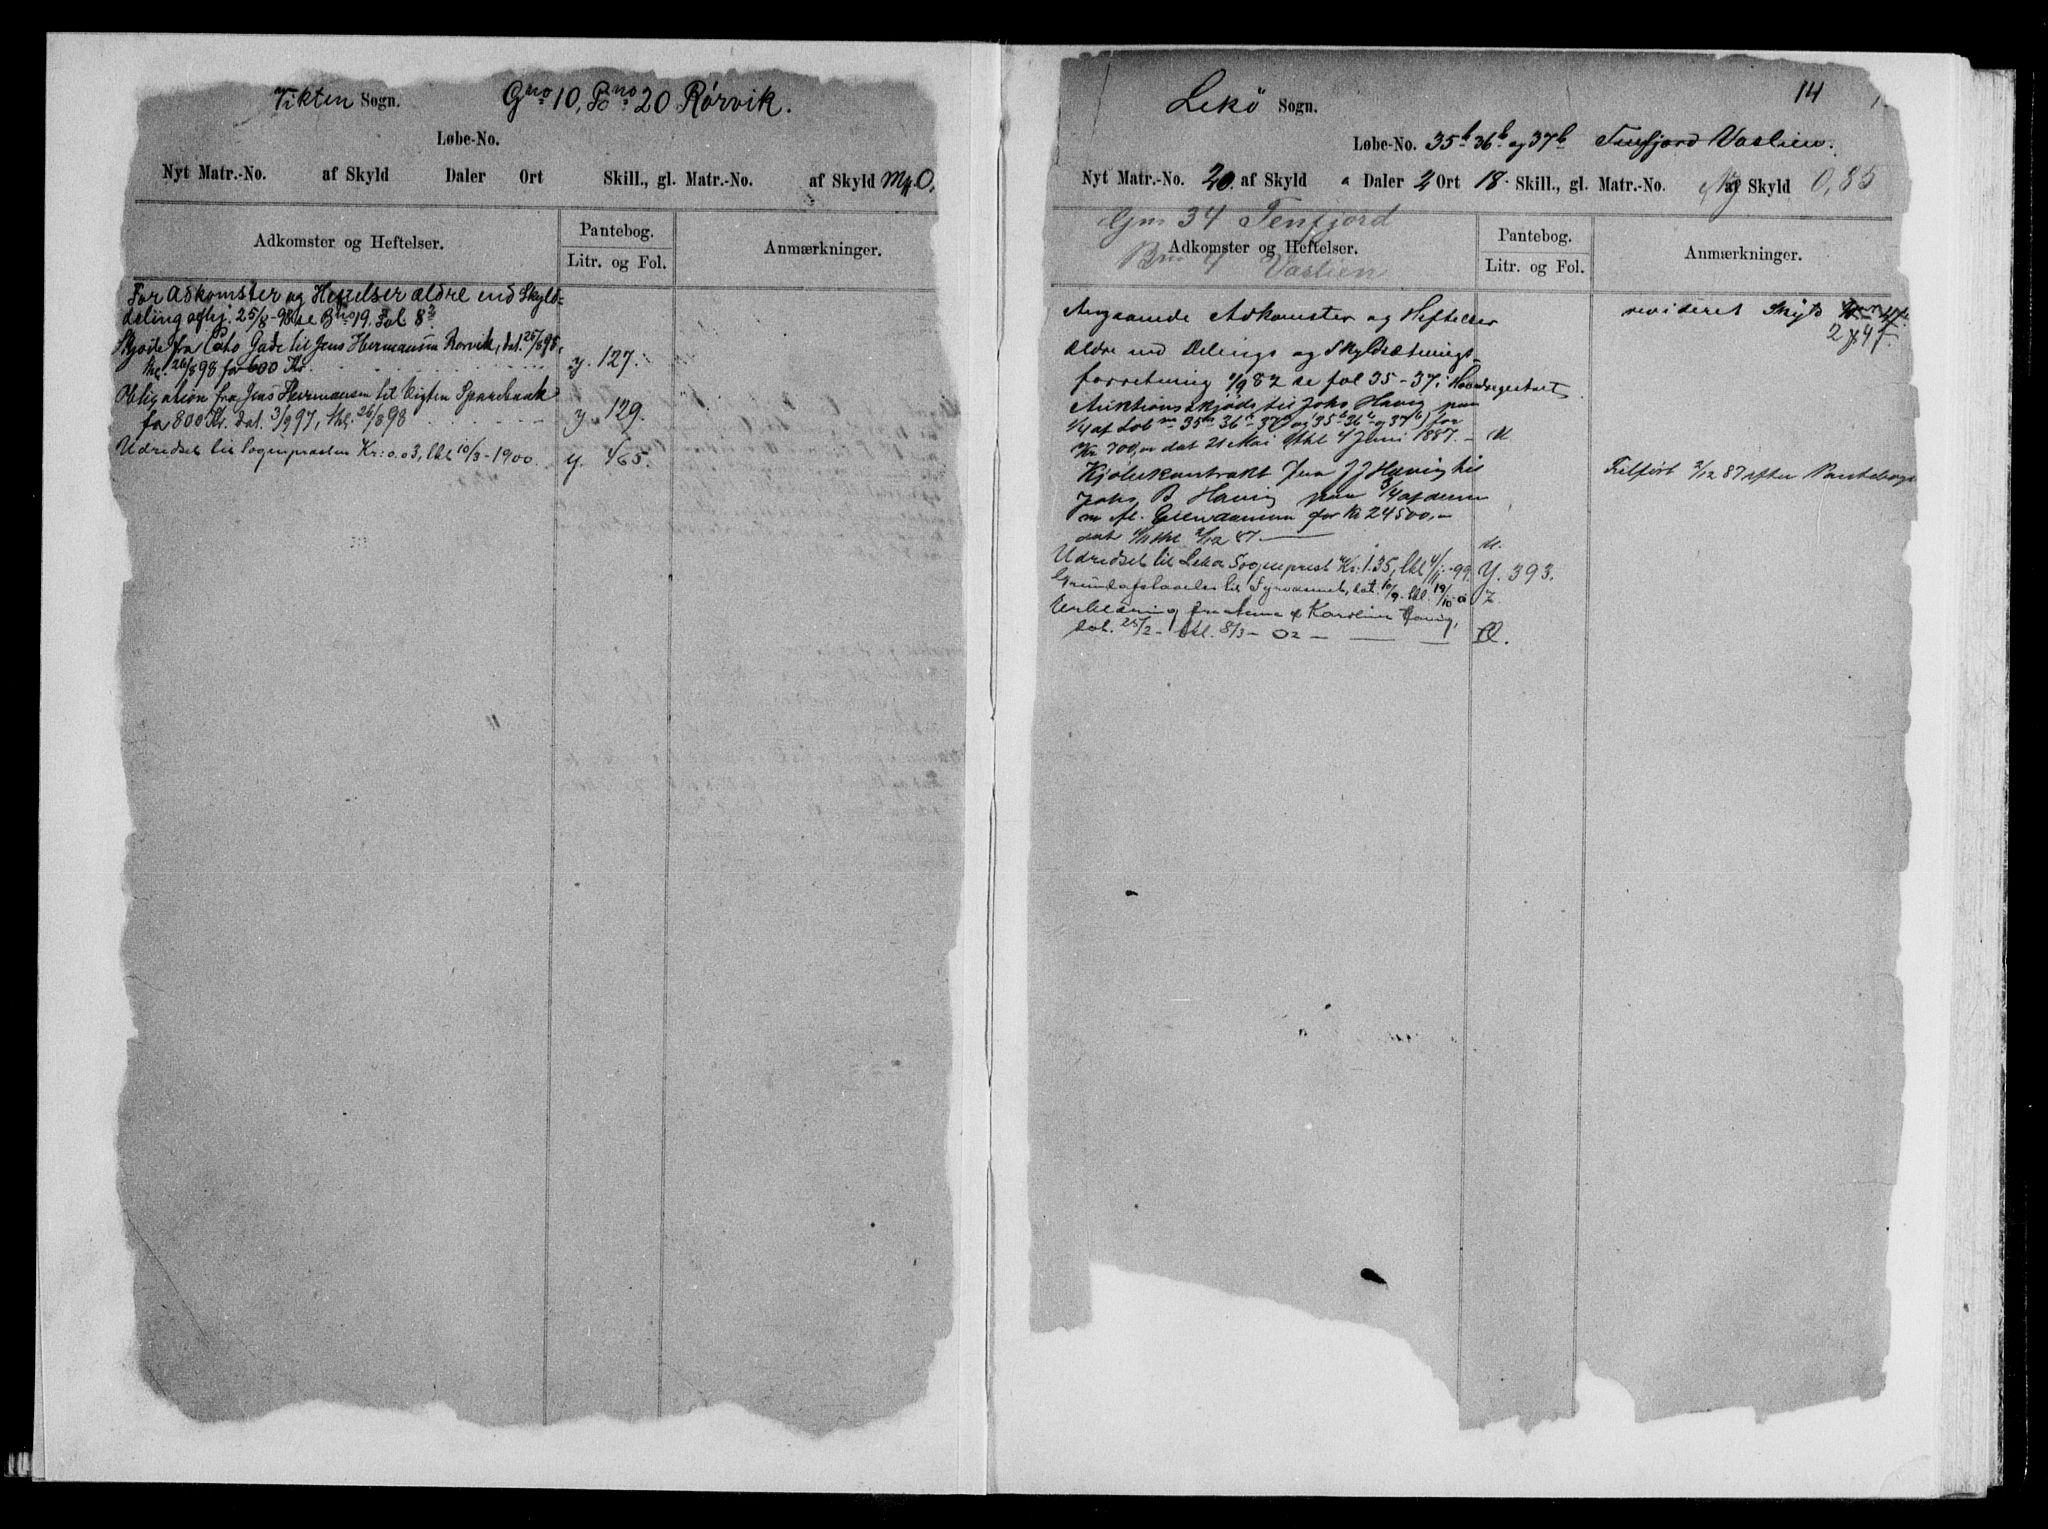 Vikten Sogn. Gno 10, Bno 20 Rørvik.
Løbe-No.
Nyt Matr.-No. af Skyld Daler Ort Skill., gl. Matr.-No. af Skyld Mk 0,
Adkomster og Heftelser.
Pantebog.
Litr. og Fol.
Anmærkninger.
For Adkomster og Heftelser ældre end Skyld=
deling afhj. 25/8-98 se Bno 19. Fol 8
Skjøde fra Cato Gade til Jens Hermansen Rørvik, dat. 25/8 98,
thl. 26/8 98 for 600 Kr. y. 127.
Obligation fra Jens Hermansen til Vigten Sparebank
for 800 Kr. dat. 3/9 97, thl. 26/8 98 y. 129.
Udredsel til Sognepresten Kr: 0.03, thl 10/3-1900. y. 465.
14
Lekø Sogn.
Løbe-No. 35b 36b og 37b Tenfjord Vaslien.
Nyt Matr.-No. 20. af Skyld " Daler 2 Ort 18 Skill., gl. Matr.-No. af Skyld 0,85
Gno 34 Tenfjord
Adkomster og Heftelser.
Bno 4 Vaslien
Pantebog.
Litr. og Fol.
Anmærkninger.
Angaaende Adkomster og Heftelser
ældre end Delings og Skyldsætnings-
forretning 1/9 82 se fol 35-37 i Hovedregistret
Auktionsskjøde til Johs Havig paa
1/4 af Løb no 35a 36a 37a og 35b 36b og 37b) for
Kr 700,- dat 21 Mai thl 4 Juni 1887. - M
Kjøbekontrakt fra J J Havig til
Johs B Havig paa 3/4 af denne
m fl. Eiendomme for Kr 24500,-
dat thl 2/12 87 M.
Udredsel til Lekø Sogneprest Kr: 1.35, thl 4/11-99. Y. 393.
Grundafstaaelse til Fyrvæsenet, dat. 10/9- thl. 19/10- Z
Erklæring fra Anna & Karoline Havig,
dat. 25/2- thl. 8/3-02- Æ.
revideret Skyld
2 47
Tilført 2/12 87 efter Pantebogen